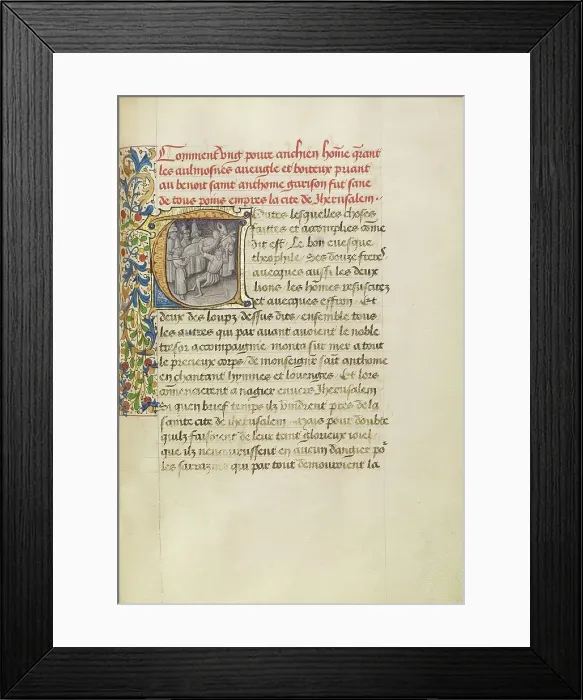 Comment vng poure anchien hom̄e q̄rant
les aulmosnes aueugle et boiteux priant
au benoit saint anthome garison fut sane
de tous poins empres la cite de Jherusalem.
Toutes lesquelles choses
faittes et acomplies com̄e
dit est. Le bon euesque
theophile. Ses douze freres
auecques aussi les deux
lions. les hom̄es resuscitez
et auecques effron. Et
deux des loupz dessus dits. ensemble tous
les autres qui par auant auoient le noble
tresor accompaignie. monta sur mer a tout
le precieux corps. de monseignr̄ sait̄ anthome
en chantant hymnes et louenges. Et lors
com̄encerent a nagier enuers Jherusalem
Si quen brief temps ilz vindrent pres de la
sainte cite de iherusalem. Mais pour doubte
quilz faisoient de leur tant glorieux ioiel
que ilz nencourussent en aucun dangier po
les sarrazins qui par tout demouroient la